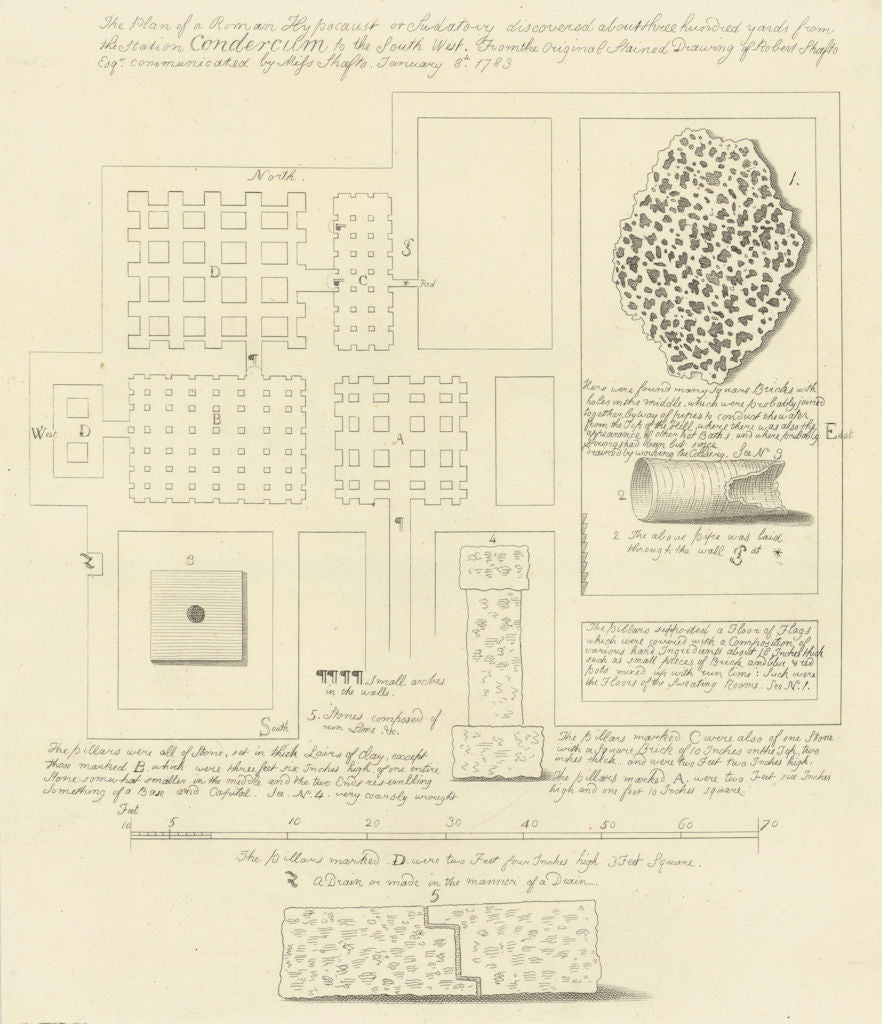 The Plan of a Roman Hypocaust or Sudatory discovered about three hundred yards from
the Station Condercum to the South West. From the Original Stained Drawing of Robert Shafto
Esqr. communicated by Miss Shafto. January 8th. 1783
North.
1.
D
C
Red
Here were found many square Bricks with
holes in the middle, which were probably joined
together, by way of pipes to conduct the water
from the Top of the Hill, where there was also the
appearance of other hot Baths, and where probably
Springs had been but since
drained by working the Colliery. See No 3
West
D
B
A
East
2
2 The above pipe was laid
through the wall at *
3
4
The pillars supported a Floor of Flags
which were covered with a Composition of
various hard Ingredients about 18 Inches thick
such as small pieces of Brick and blue & red
pots mixed up with run lime: Such were
the Floors of the Sweating Rooms. See No. 1.
¶¶¶¶ Small arches
in the walls.
5. Stones composed of
run Lime. &c.
South
The pillars were all of Stone, set in thick Lairs of Clay, except
those marked B. which were three feet six Inches high, of one entire
Stone somewhat smaller in the middle and the two Ends resembling
something of a Base and Capital. See. No. 4. very coarsly wrought
The pillars marked C were also of one Stone
with a Square Brick of 10 Inches on the Top, two
inches thick. and were two Feet two Inches high.
The pillars marked A. were two Feet six Inches
high and one foot 10 Inches square.
Feet
10 5 10 20 30 40 50 60 70
The pillars marked D. were two Feet four Inches high 3 Feet Square.
A Drain or made in the manner of a Drain
5